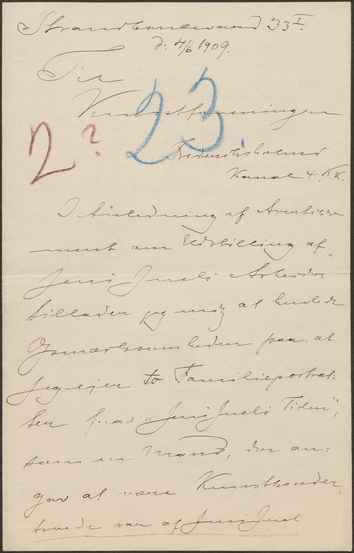 Strandboulevard 33 I.
d. 4/6 1909.
Til
Kunstforeningen
2?
23.
Frederiksholms
Kanal 4. KK.
I Anledning af Avertisse
ment om Udstilling af
Jens Juels Arbeider
tillader jeg mig at henlede
Opmærksomheden paa, at
jeg ejer to Familieportræt
ter fra "Jens Juels Tiden",
som en Mand, der an
gav at være Kunstkender,
troede var af Jens Juel